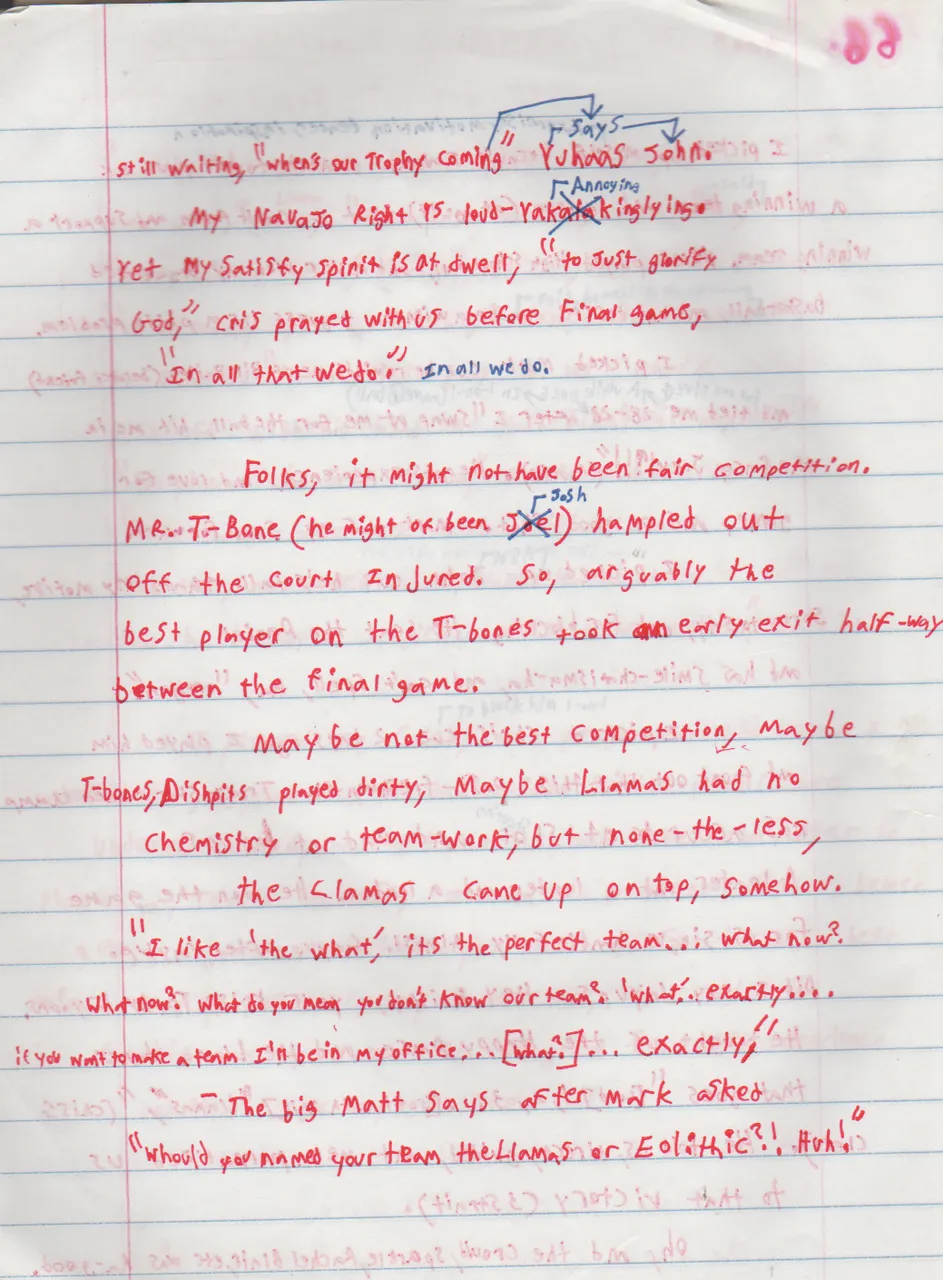 Says
still waiting, "when's our Trophy coming" Yuhaas John.
Annoying
My Navajo Right is loud-Yakatakinglying.
Yet my satisfy spirit is at dwell, "to just glorify
God," cris prayed with us before Final game,
"In all that we do." In all we do.
Folks, it might not have been fair competition.
Josh
MR. T-Bone (he might of been Joel) hampled out
off the court Injured. So, arguably the
best player on the T-bones took an early exit half-way
between the final game.
Maybe not the best competition, Maybe
T-bones, Dishpits played dirty, Maybe Llamas had no
Chemistry or team-work, but none-the-less,
the Llamas came up on top, somehow.
"I like 'the what', its the perfect team... what now?.
What now?. What do you mean you don't know our team?. 'what'.. exactly....
if you want to make a team I'll be in my office...[what?]... exactly,"
- The big Matt says after mark asked
"Whould you named your team the Llamas or Eolithic?!. Huh!"